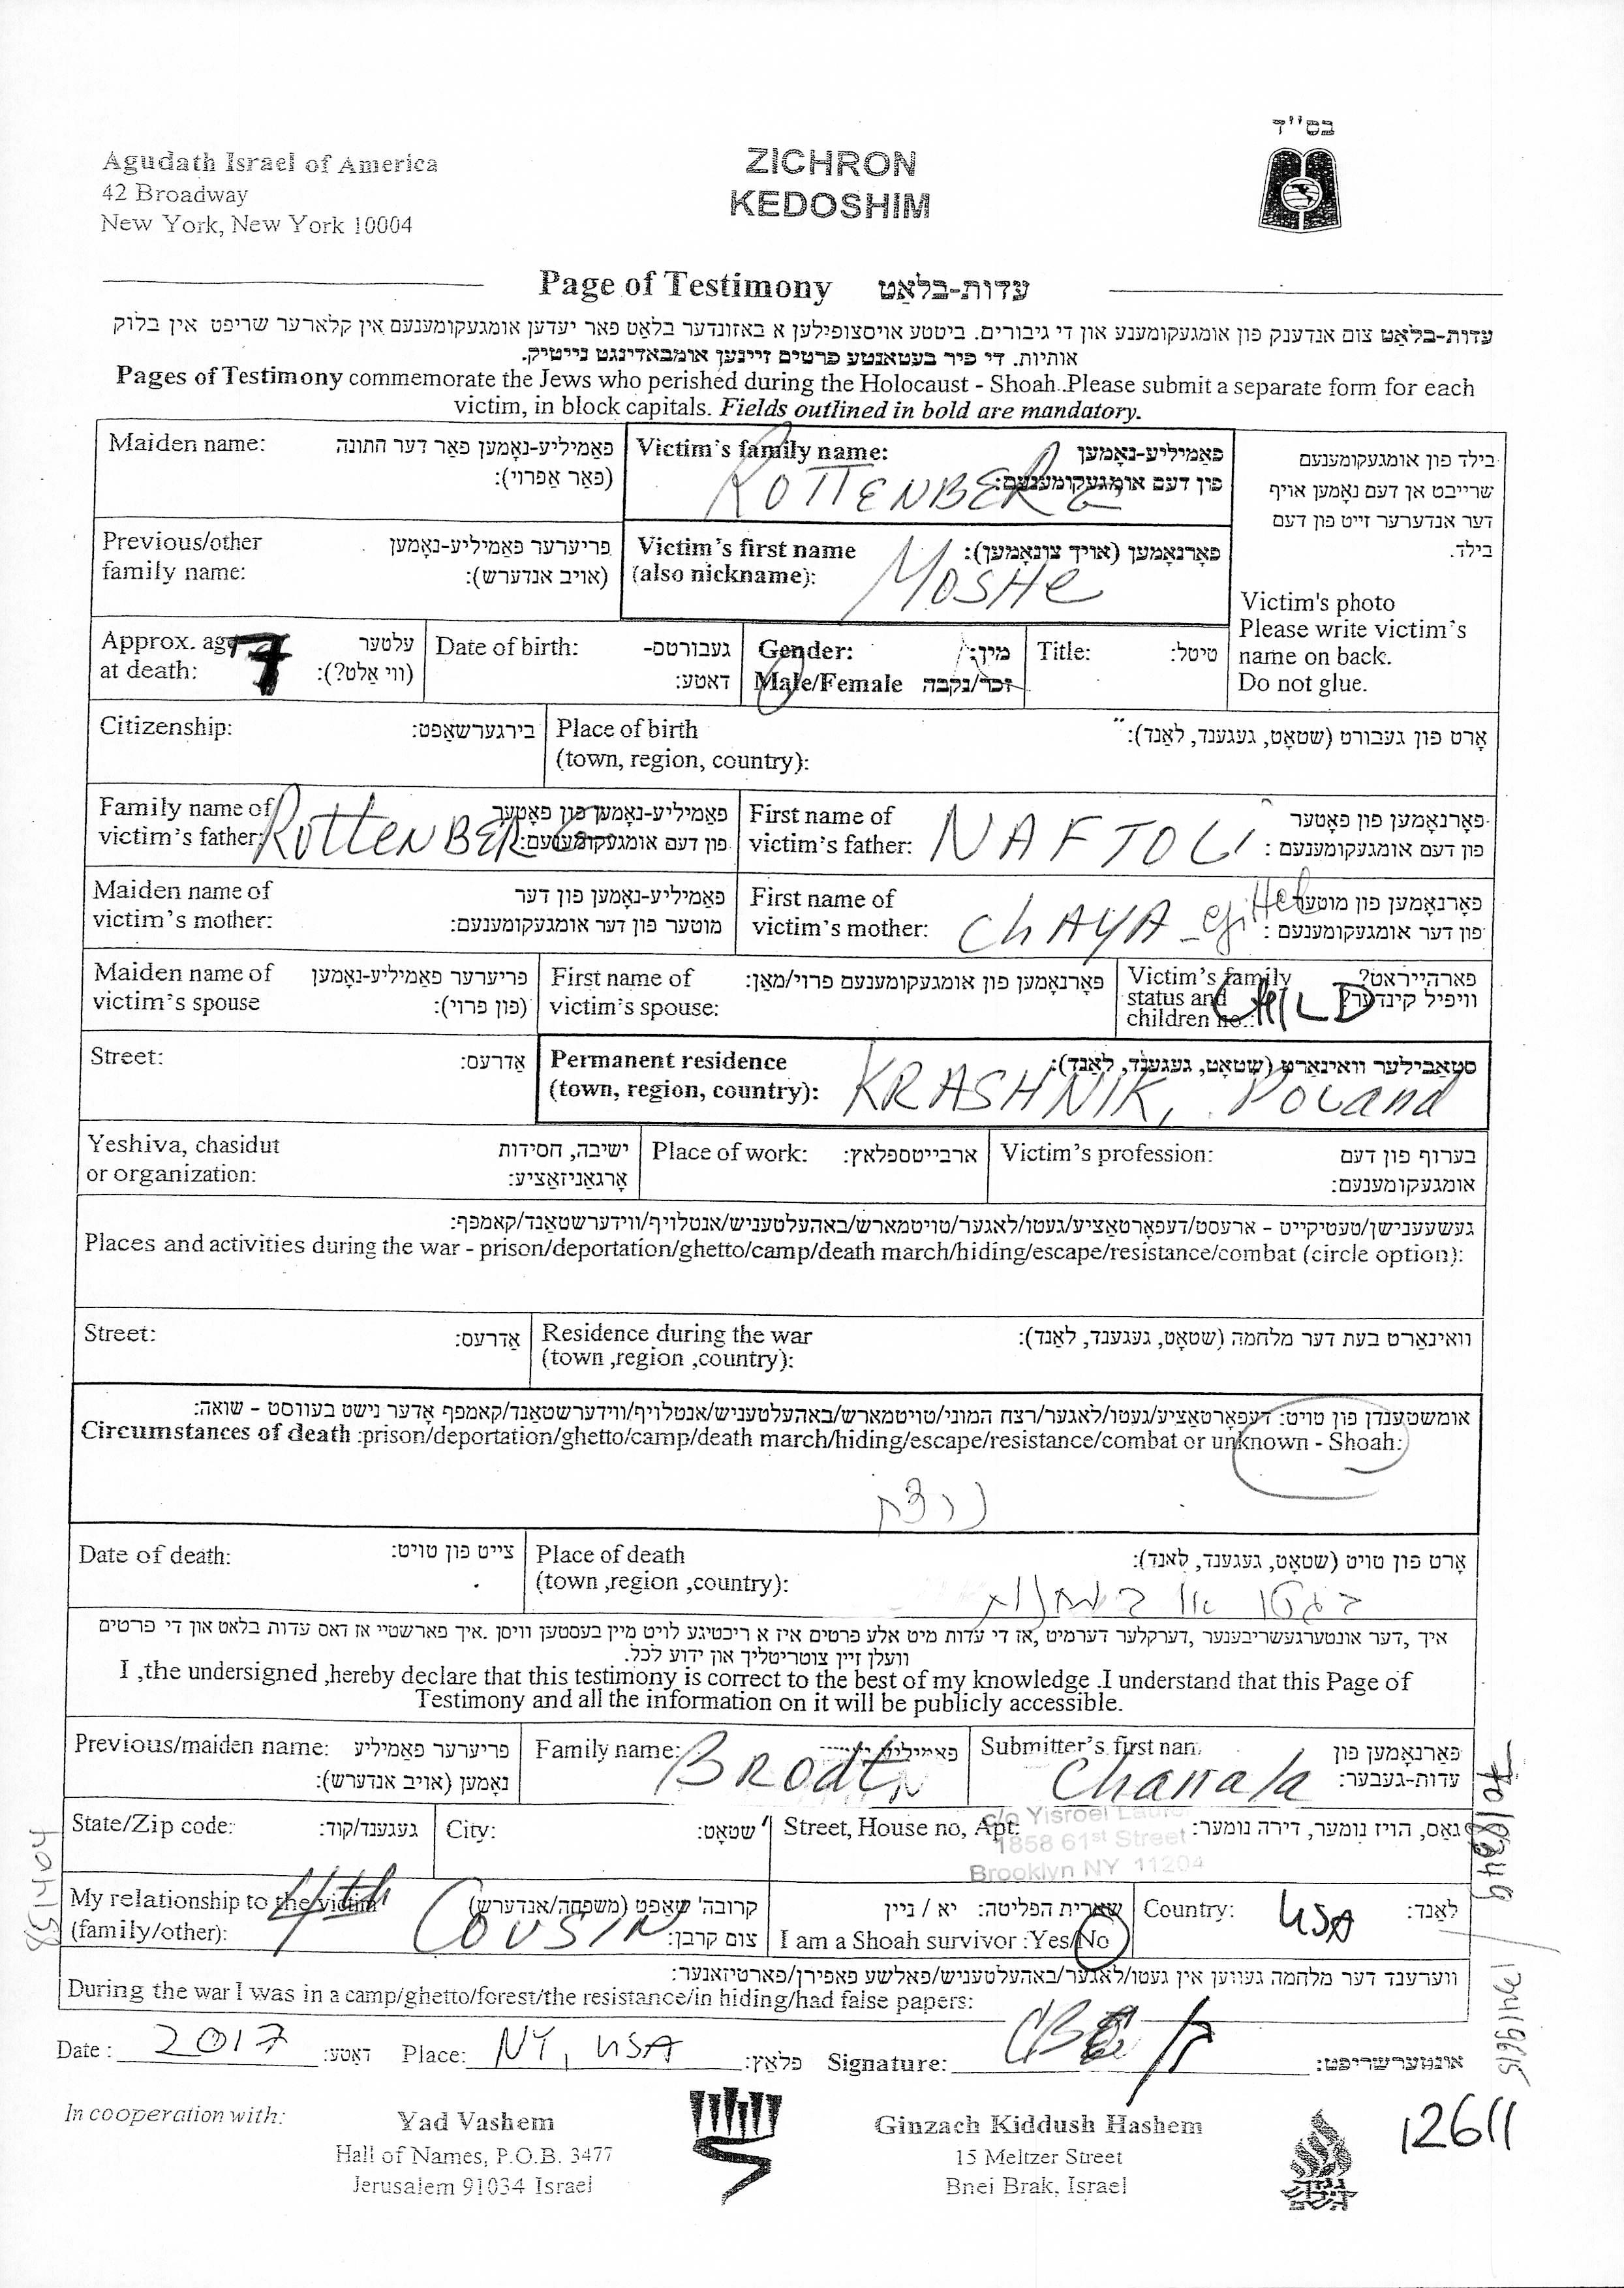 בס''ד
Agudath Israel of America
42 Broadway
New York, New York 10004
ZICHRON
KEDOSHIM
Page of Testimony עדות-בלאַט
עדות-בלאַט צום אנדענק פון אומגעקומענע און די גיבורים. ביטע אויסצופילען א באזונדער בלאַט פאר יעדען אומגעקומענעם אין קלארער שריפט אין בלוק
אותיות. די פיר בעטאנטע פרטים זיינען אומבאדינגט נייטיק.
Pages of Testimony commemorate the Jews who perished during the Holocaust - Shoah. Please submit a separate form for each
victim, in block capitals. Fields outlined in bold are mandatory.
Maiden name: פאַמיליע-נאָמען פאַר דער חתונה
(פאַר אַפרוי):
Victim's family name: פאַמיליע-נאָמען
פון דעם אומגעקומענעם:
ROTTENBERG
Previous/other פריערער פאַמיליע-נאָמען
family name: (אויב אנדערש):
Victim's first name פאָרנאָמען (אויך צונאָמען):
(also nickname):
MOSHe
בילד פון אומגעקומענעם
שרייבט אן דעם נאָמען אויף
דער אנדערער זייט פון דעם
בילד.
Victim's photo
Please write victim's
name on back.
Do not glue.
Approx. age עלטער
at death: (ווי אַלט?):
7
Date of birth: געבורטס-
דאטע:
Gender: מין:
Male/Female זכר/נקבה
Title: טיטל:
Citizenship: בירגערשאַפט:
Place of birth אָרט פון געבורט (שטאָט, געגענד, לאַנד):
(town, region, country):
Family name of פאַמיליע-נאָמען פון פאָטער
victim's father: פון דעם אומגעקומענעם:
RottenBERG
First name of פאָרנאָמען פון פאָטער
victim's father: פון דעם אומגעקומענעם:
NAFTOLi
Maiden name of פאַמיליע-נאָמען פון דער
victim's mother: מוטער פון דער אומגעקומענעם:
First name of פאָרנאָמען פון מוטער
victim's mother: פון דער אומגעקומענעם:
ChAYA-gittel
Maiden name of פריערער פאַמיליע-נאָמען
victim's spouse (פון פרוי):
First name of פאָרנאָמען פון אומגעקומענעם פרוי/מאַן:
victim's spouse:
Victim's family פארהייראט?
status and וויפיל קינדער?
children no.:
CHILD
Street: אַדרעס:
Permanent residence סטאַבילער וואוינאָרט (שטאָט, געגענד, לאַנד):
(town, region, country):
KRASHNIK, Poland
Yeshiva, chasidut ישיבה, חסידות
or organization: אָרגאַניזאַציע:
Place of work: ארבייטספלאץ:
Victim's profession: בערוף פון דעם
אומגעקומענעם:
געשעענישן/טעטיקייט - ארעסט/דעפּאָרטאַציע/געטו/לאגער/טויטמארש/באהעלטעניש/אנטלויף/ווידערשטאַנד/קאמפף:
Places and activities during the war - prison/deportation/ghetto/camp/death march/hiding/escape/resistance/combat (circle option):
Street: אַדרעס:
Residence during the war וואוינאָרט בעת דער מלחמה (שטאָט, געגענד, לאַנד):
(town ,region ,country):
אומשטענדן פון טויט: דעפּאָרטאַציע/געטו/לאגער/רצח המוני/טויטמארש/באהעלטעניש/אנטלויף/ווידערשטאַנד/קאמפף אָדער נישט בעוואוסט - שואה:
Circumstances of death :prison/deportation/ghetto/camp/death march/hiding/escape/resistance/combat or unknown - Shoah:
נרצח
Date of death: צייט פון טויט:
Place of death אָרט פון טויט (שטאָט, געגענד, לאנד):
(town ,region ,country):
בגטו או במחנות
איך ,דער אונטערגעשריבענער ,דערקלער דערמיט ,אז די עדות מיט אלע פרטים איז א ריכטיגע לויט מיין בעסטען וויסן .איך פארשטיי אז דאס עדות בלאט און די פרטים
וועלן זיין צוטריטליך און ידוע לכל.
I ,the undersigned ,hereby declare that this testimony is correct to the best of my knowledge .I understand that this Page of
Testimony and all the information on it will be publicly accessible.
Previous/maiden name: פריערער פאַמיליע
נאָמען (אויב אנדערש):
Family name:
Brodt
Submitter's first nam פאָרנאָמען פון
עדות-געבער:
Chanala
State/Zip code: געגענד/קוד:
City: שטאָט:
Street, House no, Apt: גאַס, הויז נומער, דירה נומער:
c/o Yisroel
1858 61st Street
Brooklyn NY 11204
My relationship to the victim קרובה'שאַפט (משפחה/אנדערש)
(family/other): צום קרבן:
4th Cousin
שארית הפליטה: יא / ניין
I am a Shoah survivor :Yes/No
Country: לאַנד:
USA
ווערענד דער מלחמה געווען אין געטו/לאגער/באהעלטעניש/פאלשע פאפירן/פארטיזאנער:
During the war I was in a camp/ghetto/forest/the resistance/in hiding/had false papers:
Date : 2017 דאטע: Place: NY, USA פלאץ: Signature: אונטערשריפט:
In cooperation with:
Yad Vashem
Hall of Names, P.O.B. 3477
Jerusalem 91034 Israel
Ginzach Kiddush Hashem
15 Meltzer Street
Bnei Brak, Israel
12611